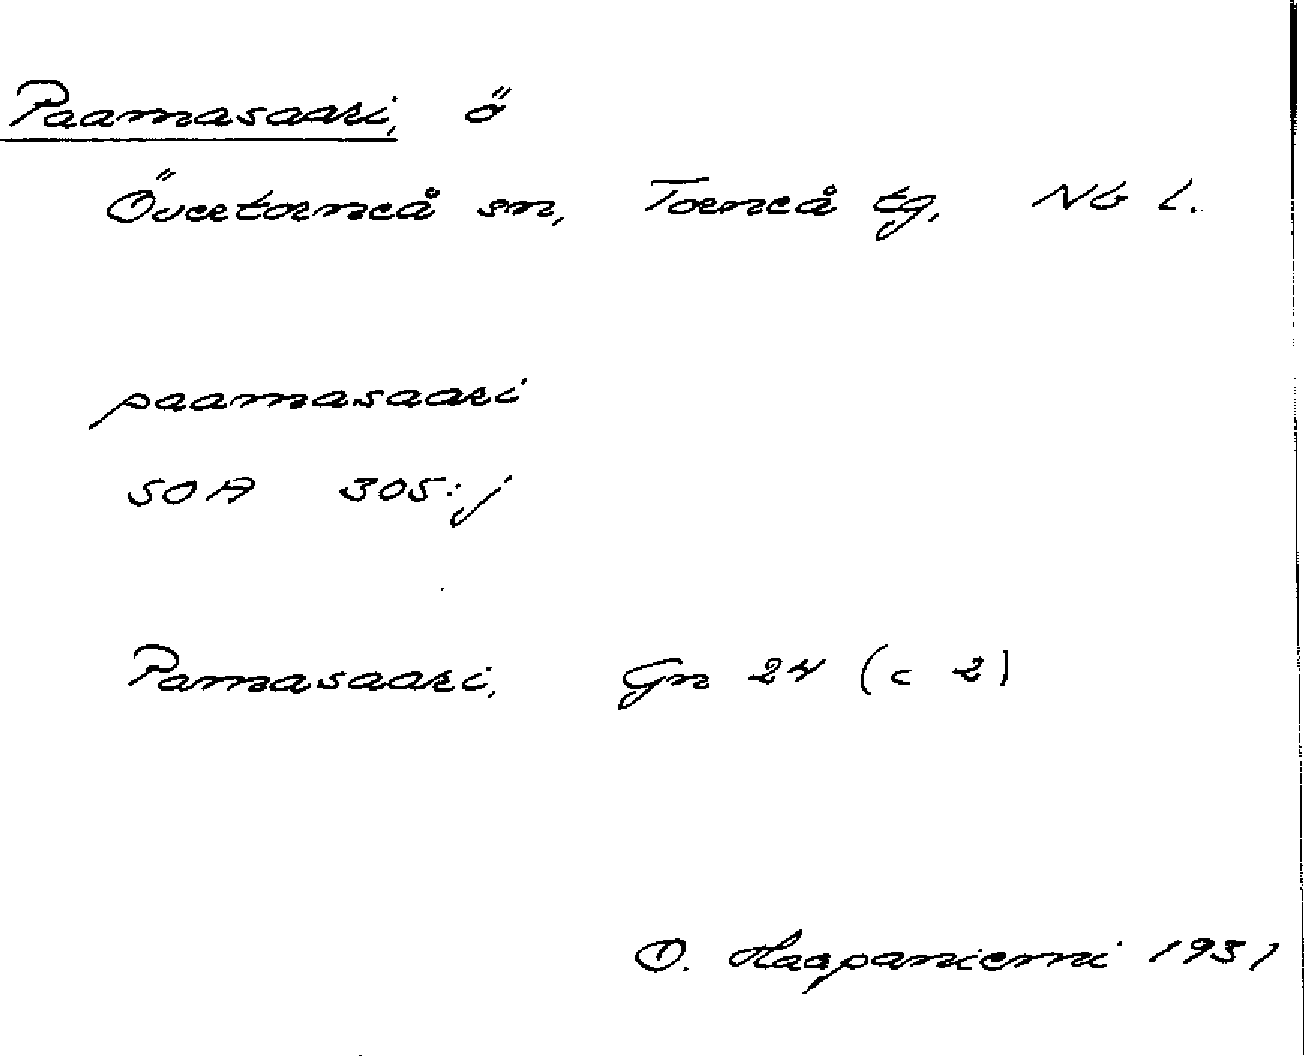 Paamasaari, ö
Övertorneå sn, Torneå tg, Nb l.
paamasaari
SOA 305:j
Pamasaari, Gn 24 (c 2)
O. Haapaniemi 1951